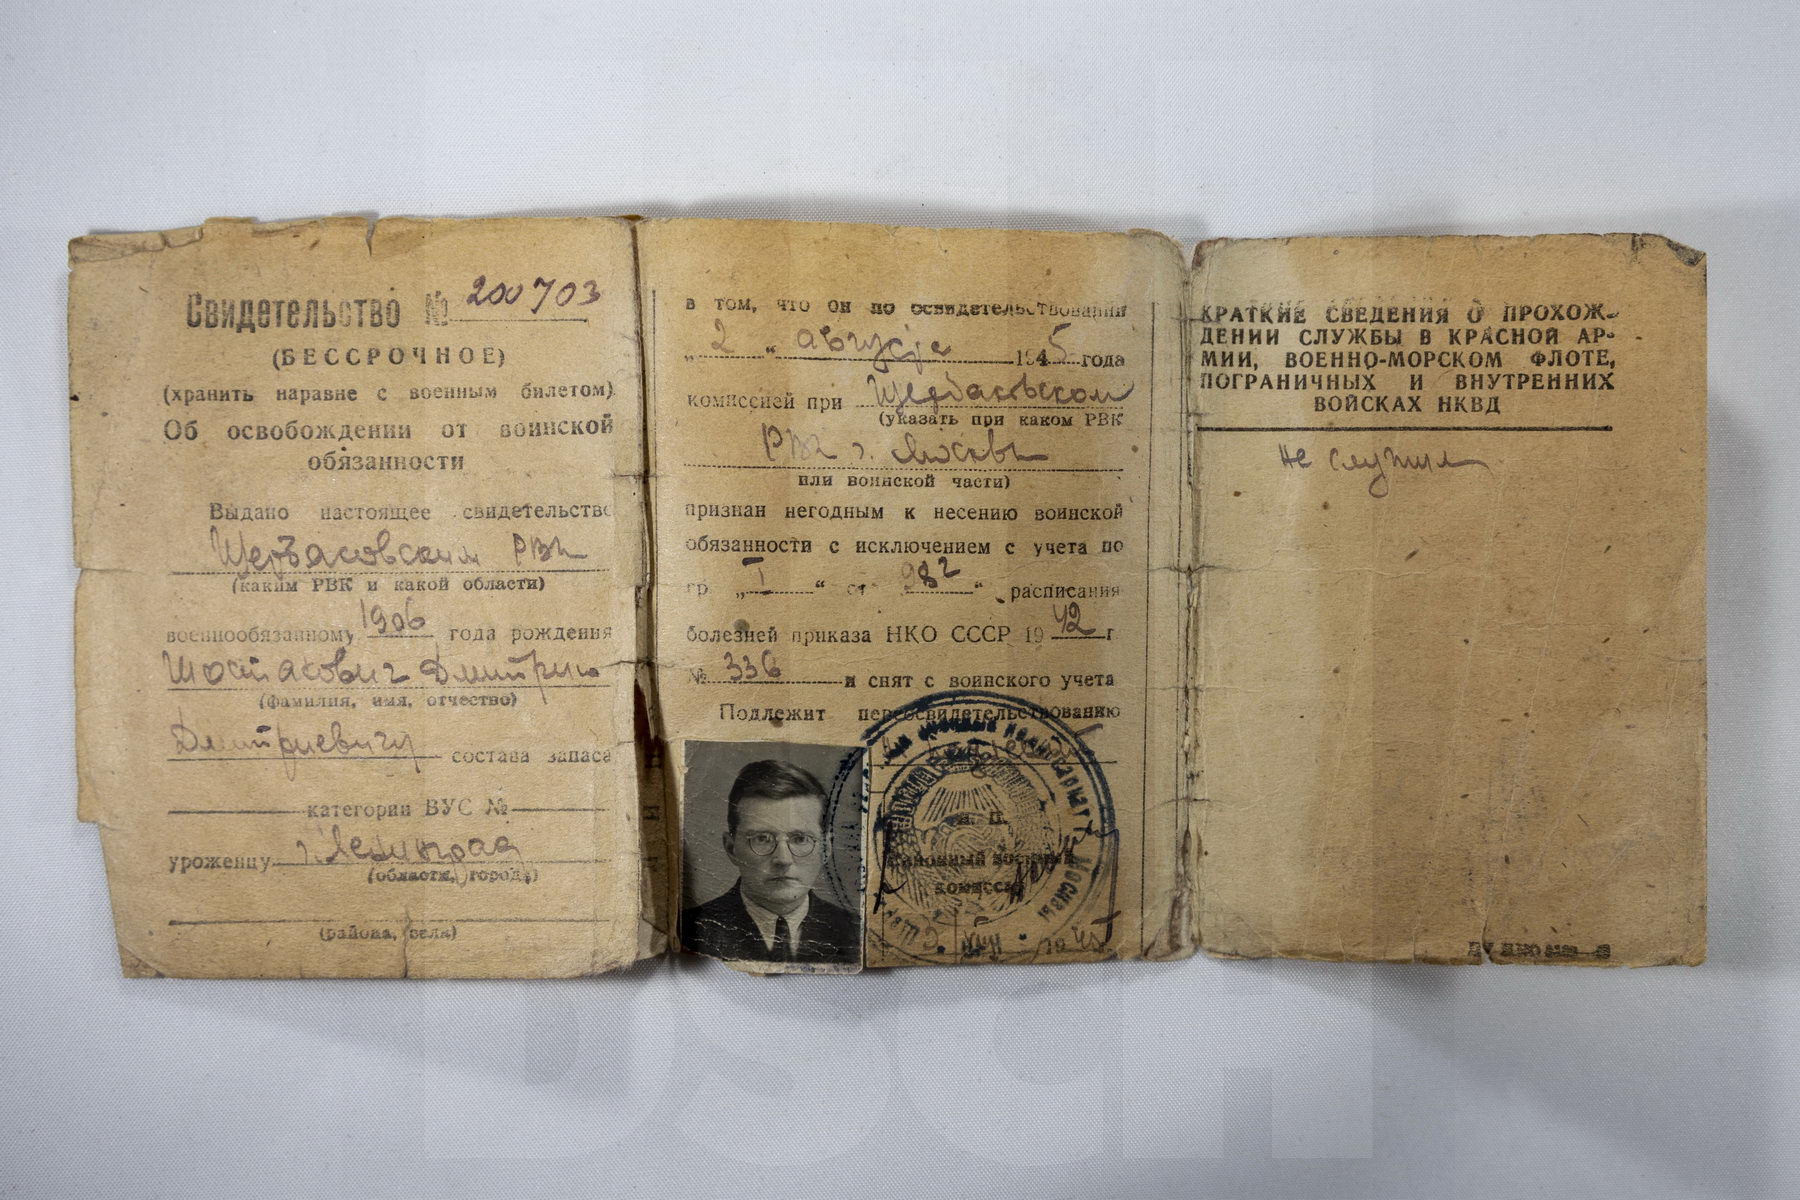 Свидетельство № 200703
(БЕССРОЧНОЕ)
(хранить наравне с военным билетом)
Об освобождении от воинской
обязанности
Выдано настоящее свидетельство
Щербаковским РВК
(каким РВК и какой области)
военнообязанному 1906 года рождения
Шостакович Дмитрию
(фамилия, имя, отчество)
Дмитриевичу состава запаса
категории ВУС №
уроженцу г. Ленинград
(области, города)
(района, села)
в том, что он по освидетельствовании
„ 2 “ августа 1945 года
комиссией при Щербаковском
(указать при каком РВК
РВК г. Москвы
или воинской части)
признан негодным к несению воинской
обязанности с исключением с учета по
гр. „ I “ ст 982 “ расписания
болезней приказа НКО СССР 1942 г
№ 336 и снят с воинского учета
Подлежит переосвидетельствованию
М. П.
Районный военный
комиссар
1945
КРАТКИЕ СВЕДЕНИЯ О ПРОХОЖ-
ДЕНИИ СЛУЖБЫ В КРАСНОЙ АР-
МИИ, ВОЕННО-МОРСКОМ ФЛОТЕ,
ПОГРАНИЧНЫХ И ВНУТРЕННИХ
ВОЙСКАХ НКВД
не служил
DSCH